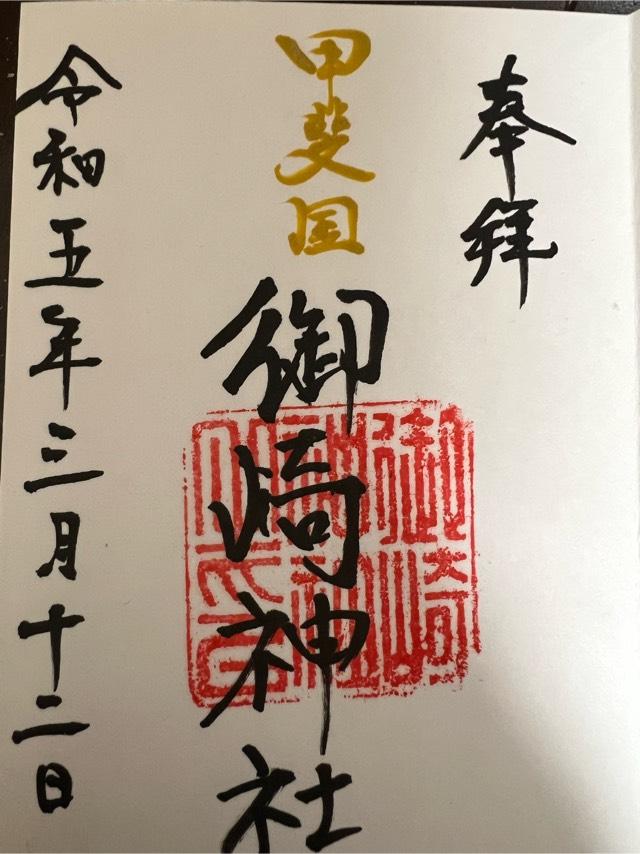 奉拝
甲斐国
御崎神社
令和五年三月十二日